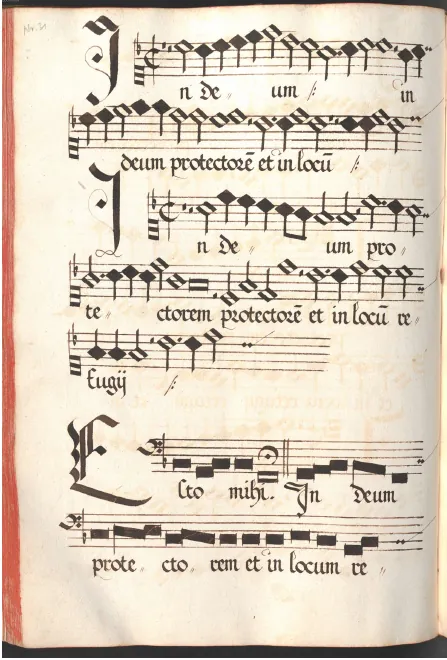 Nr. 21
In De〃 um /: in
deum protectorē et in locū /:
In De〃 um pro〃
te〃 ctorem protectorē et in locū re〃
fugij /:
Esto mihi. In deum
prote〃 cto〃 rem et in locum re〃